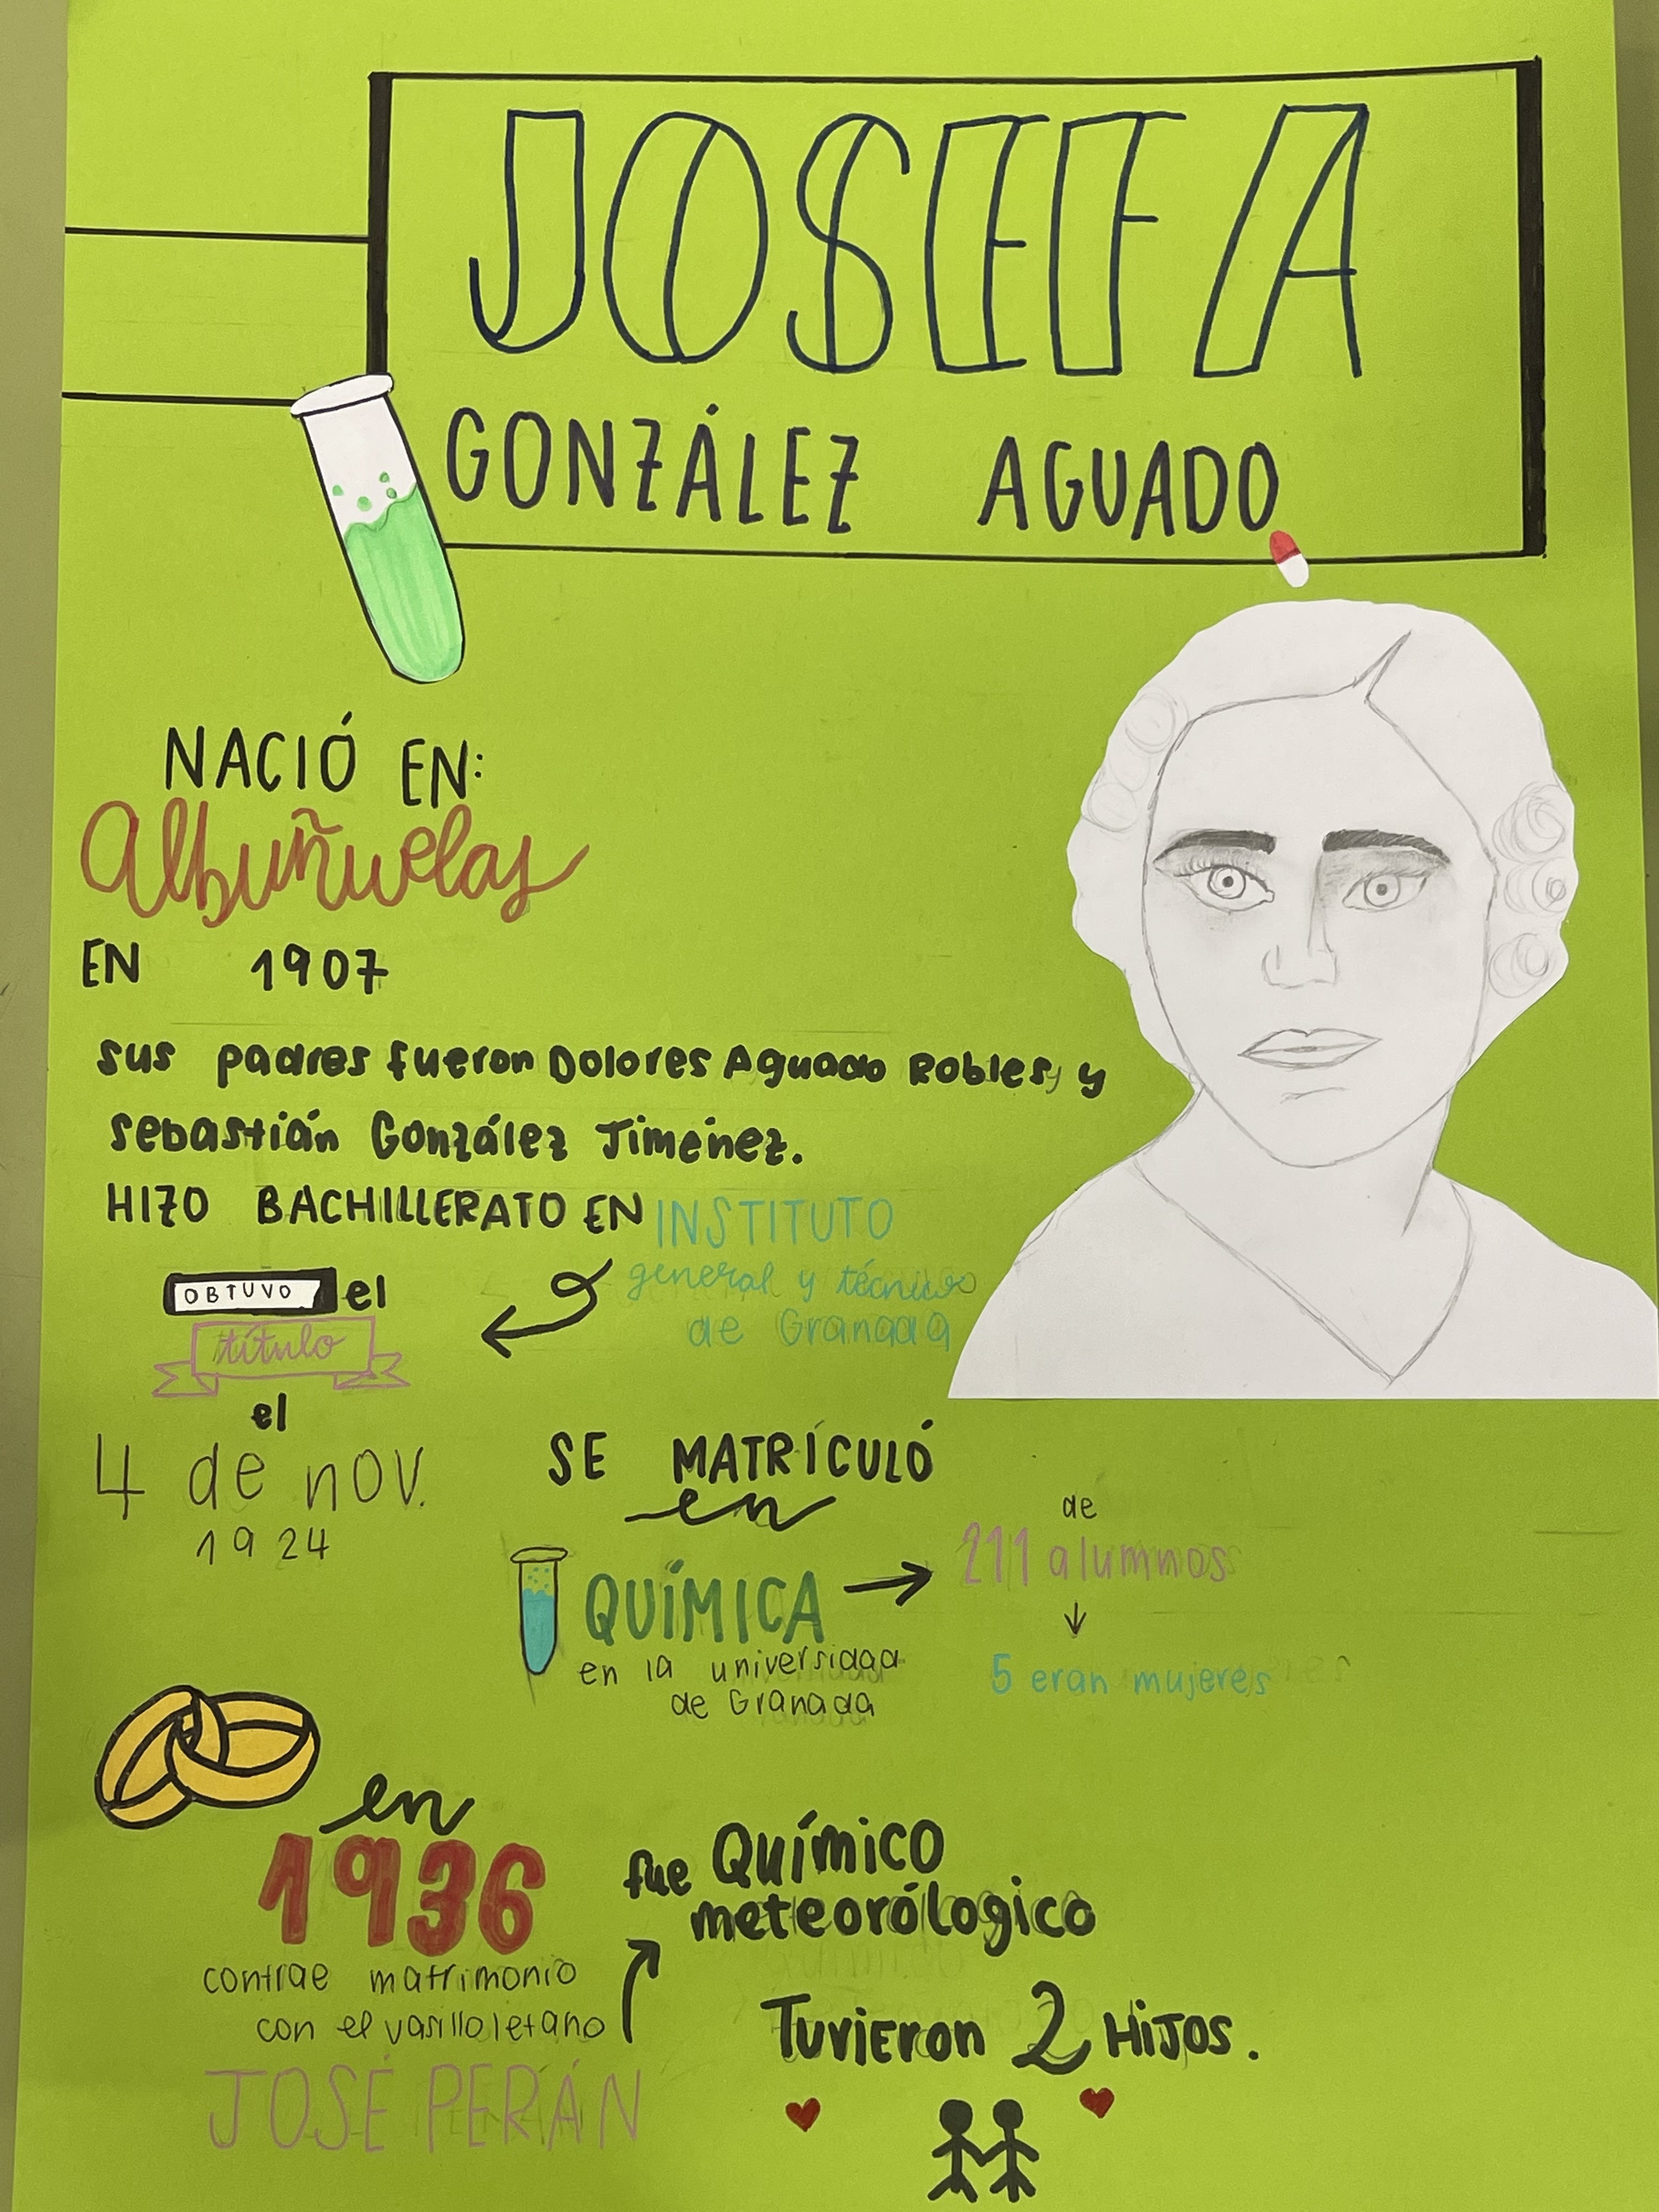 JOSEFA
GONZÁLEZ AGUADO
NACIÓ EN:
Albuñuelas
EN 1907
sus padres fueron Dolores Aguado Robles, y
Sebastián González Jiménez.
HIZO BACHILLERATO EN INSTITUTO
general y técnico
de Granada
OBTUVO el
título
el
4 de nov.
1924
SE MATRÍCULÓ
en
QUÍMICA
en la universidad
de Granada
de
211 alumnos
5 eran mujeres
en
1936
contrae matrimonio
con el vasilloletano
JOSÉ PERÁN
fue Químico
meteorólogico
Tuvieron 2 Hijos.